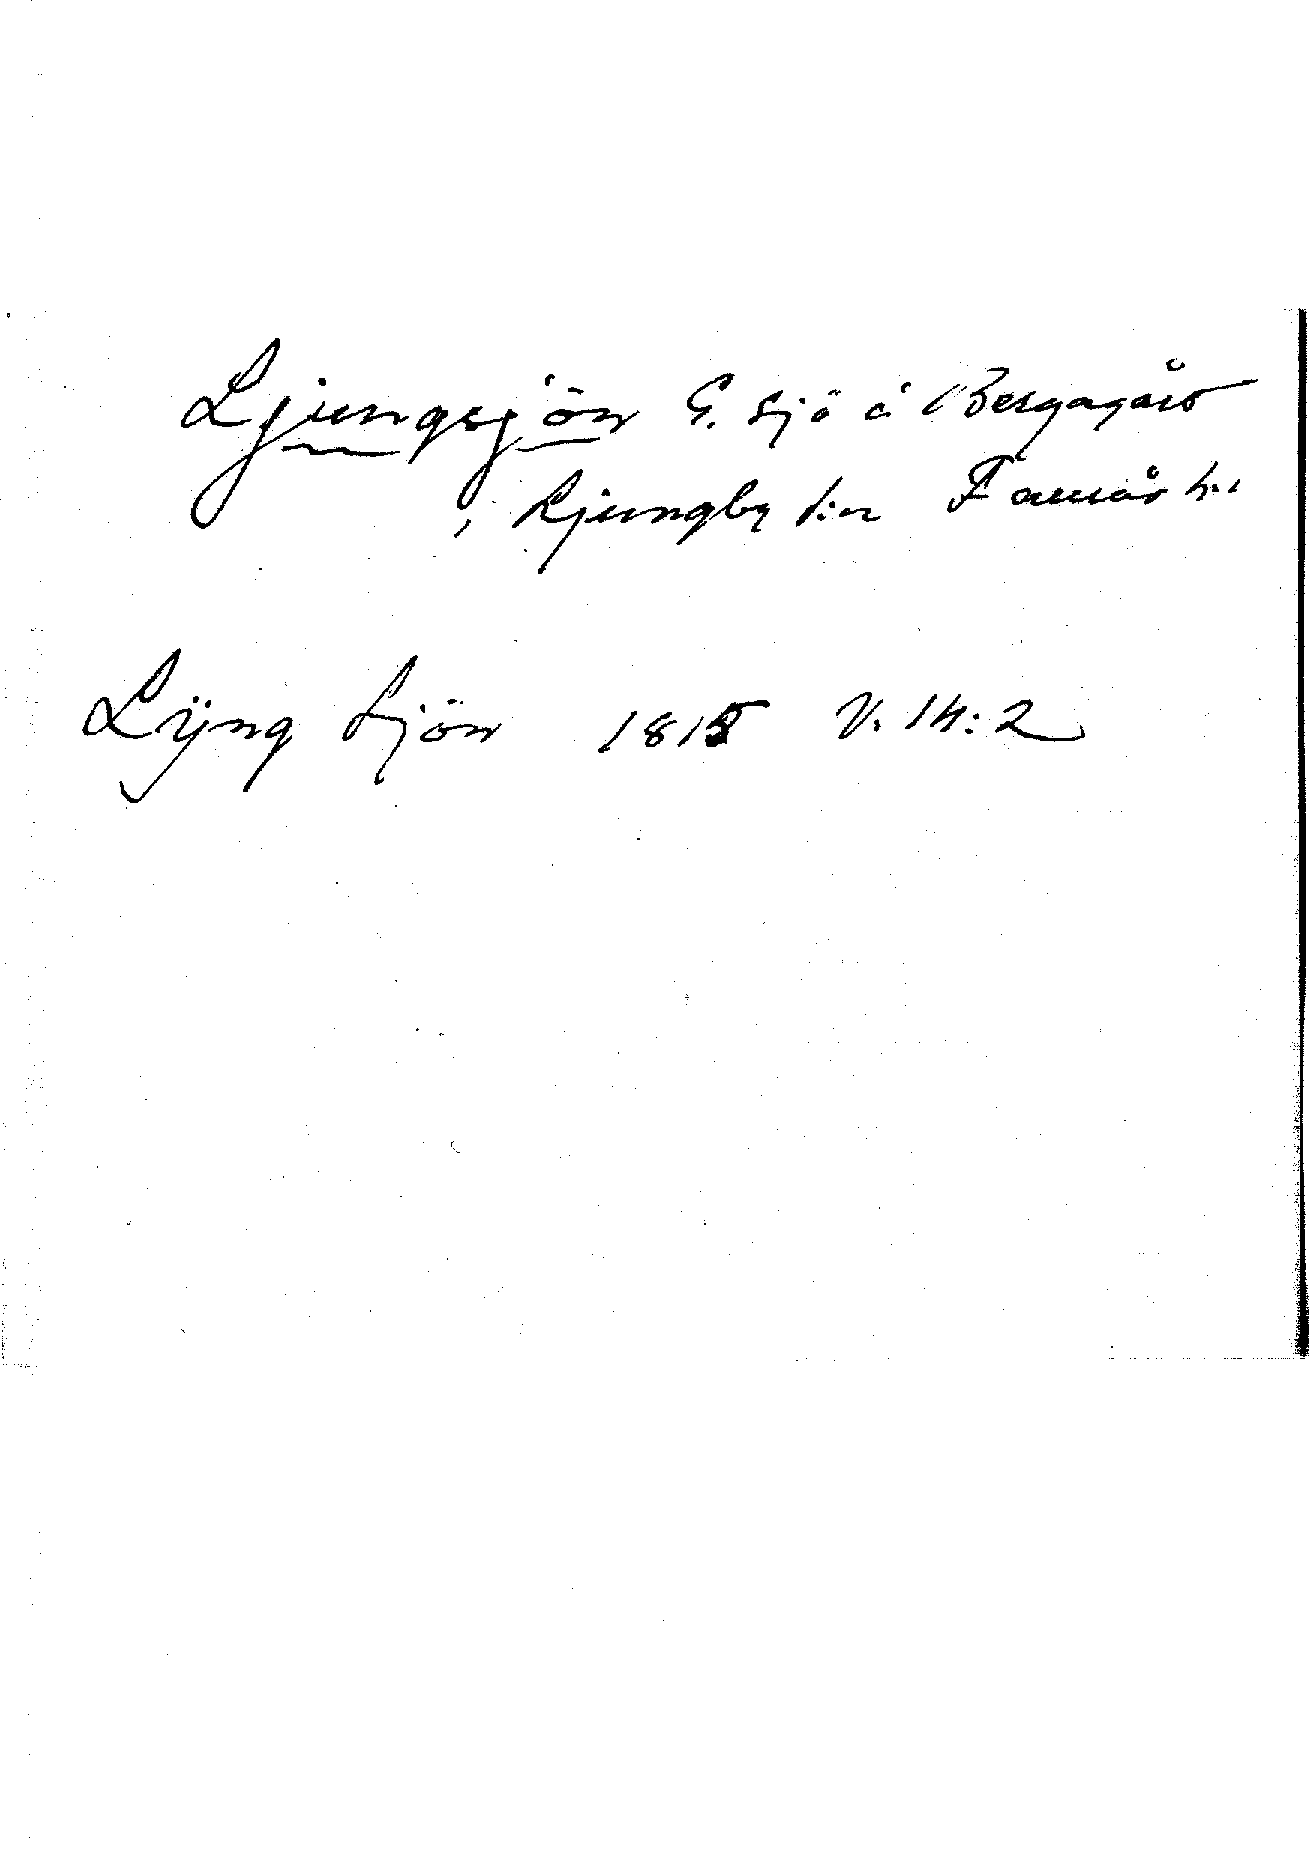 Ljungsjön G. sjö å Bergagård
i Ljungby s:n Faurås h:d
Lÿng Sjön 1815 V. 14:2